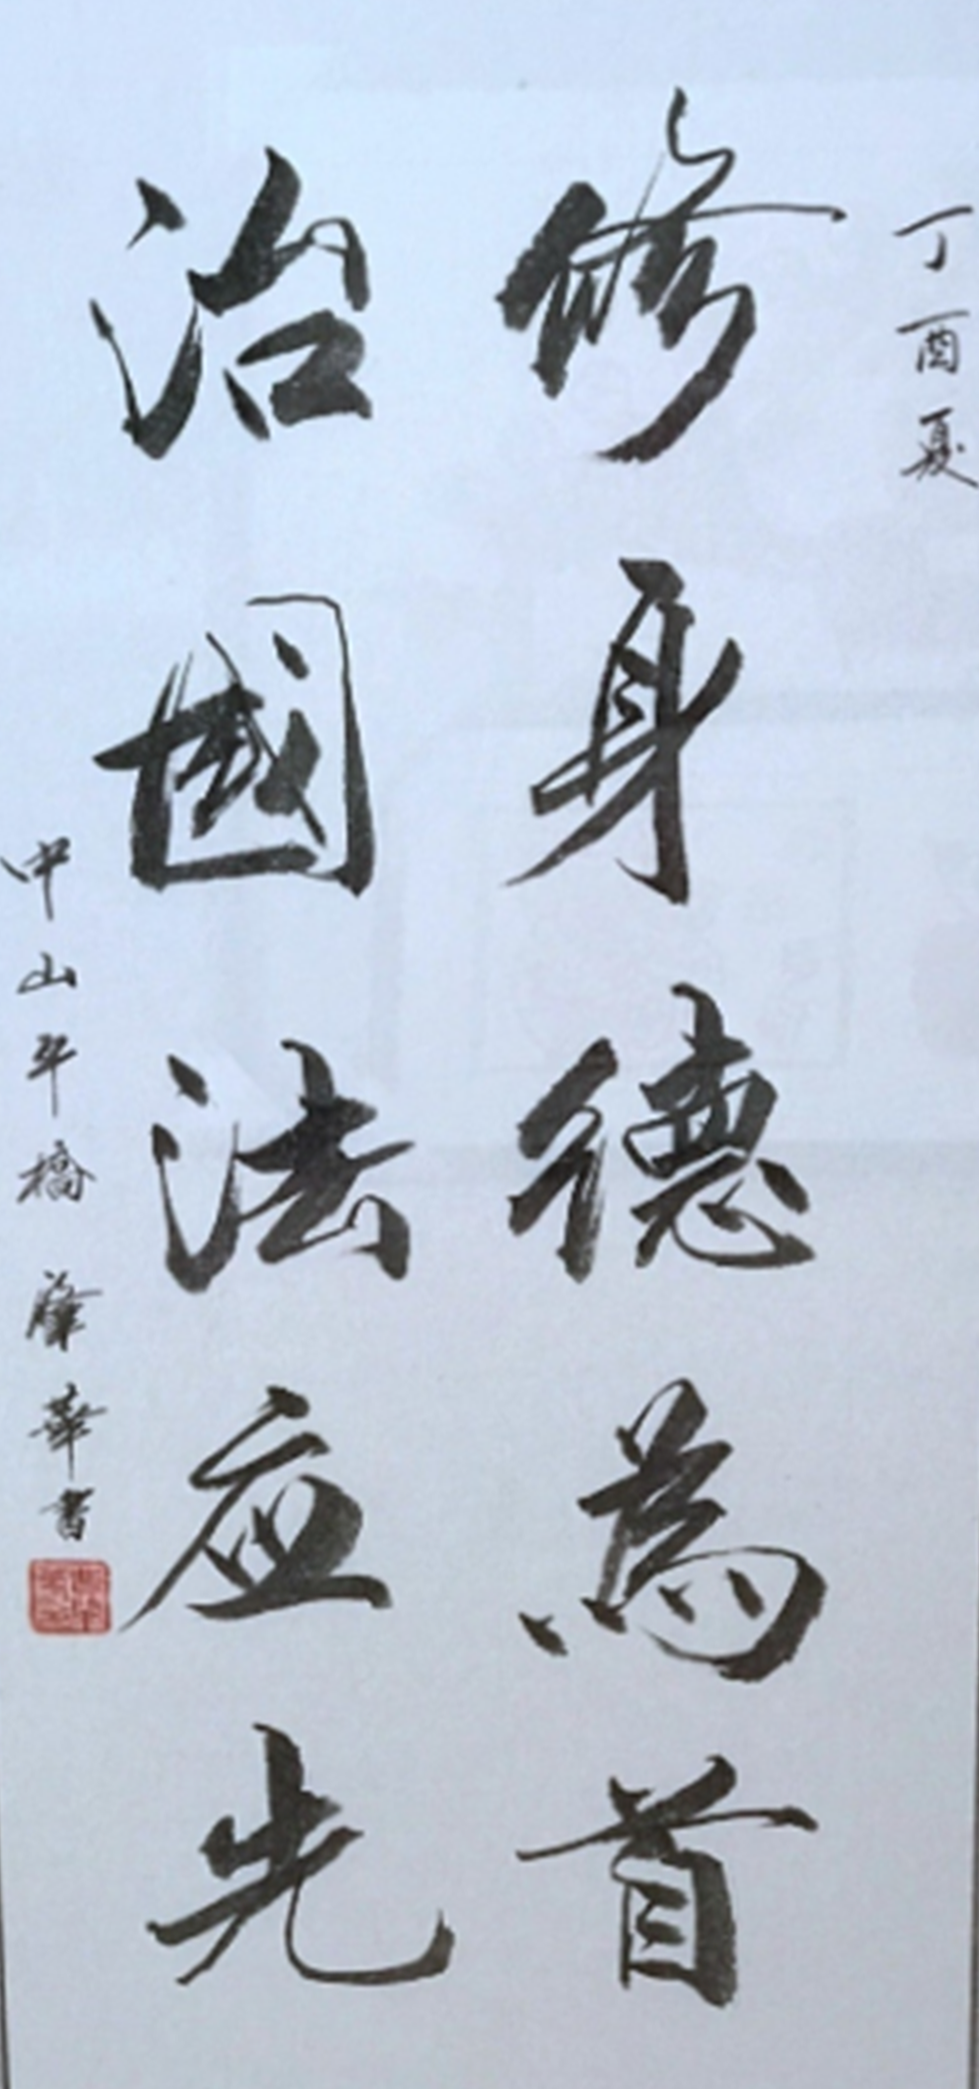 丁酉夏
修身德为首
治國法应先
中山平橋
肇華書